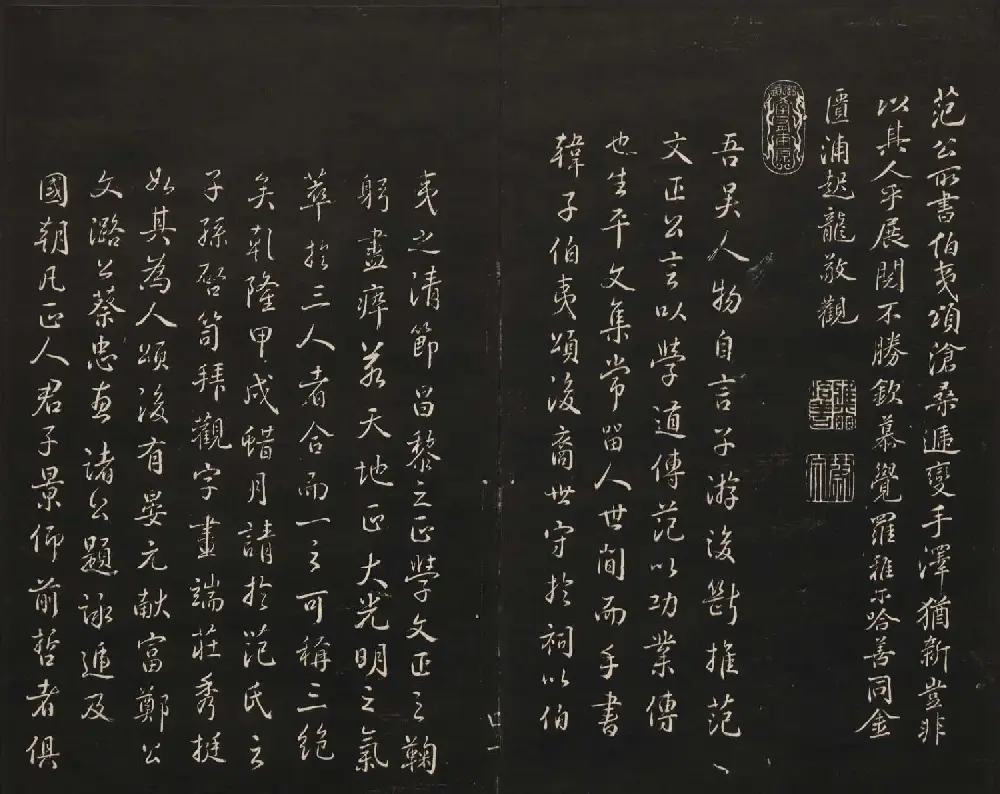 范公所書伯夷頌滄桑遞變手澤猶新豈非
以其人乎展閱不勝欽慕覺羅雅尔哈善同金
匱浦起龍敬觀
吾吳人物自言子游後斷推范
文正公言以學道傳范以功業傳
也生平文集常留人世間而手書
韓子伯夷頌後裔世守於祠以伯
夷之清節昌黎之正學文正之鞠
躬盡瘁若天地正大光明之氣
萃於三人者合而一之可稱三絕
矣乾隆甲戌蜡月請於范氏之
子孫啓笥拜觀字畫端莊秀挺
如其為人頌後有晏元献富鄭公
文潞公蔡忠惠諸公題詠逓及
國朝凡正人君子景仰前哲者俱